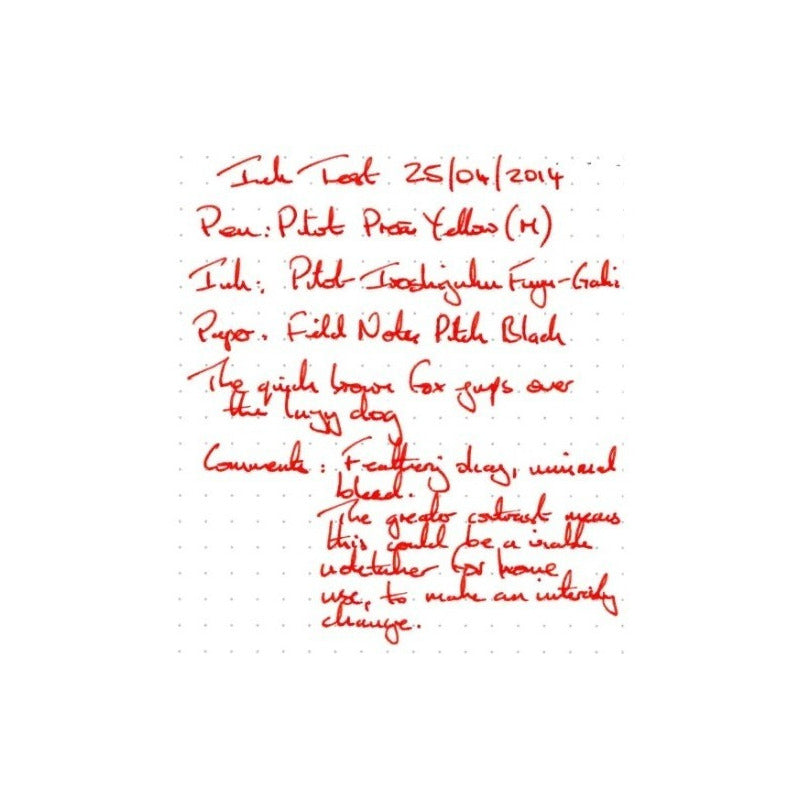 Ink Test 25/04/2014
Pen: Pilot Prera Yellow (M)
Ink: Pilot Iroshizuku Fuyu-Gaki
Paper. Field Notes Pitch Black
The quick brown fox jumps over
the lazy dog
Comments: Feathering okay, minimal
bleed.
The greater contrast means
this could be a viable
notetaker for home
use, to make an interesting
change.